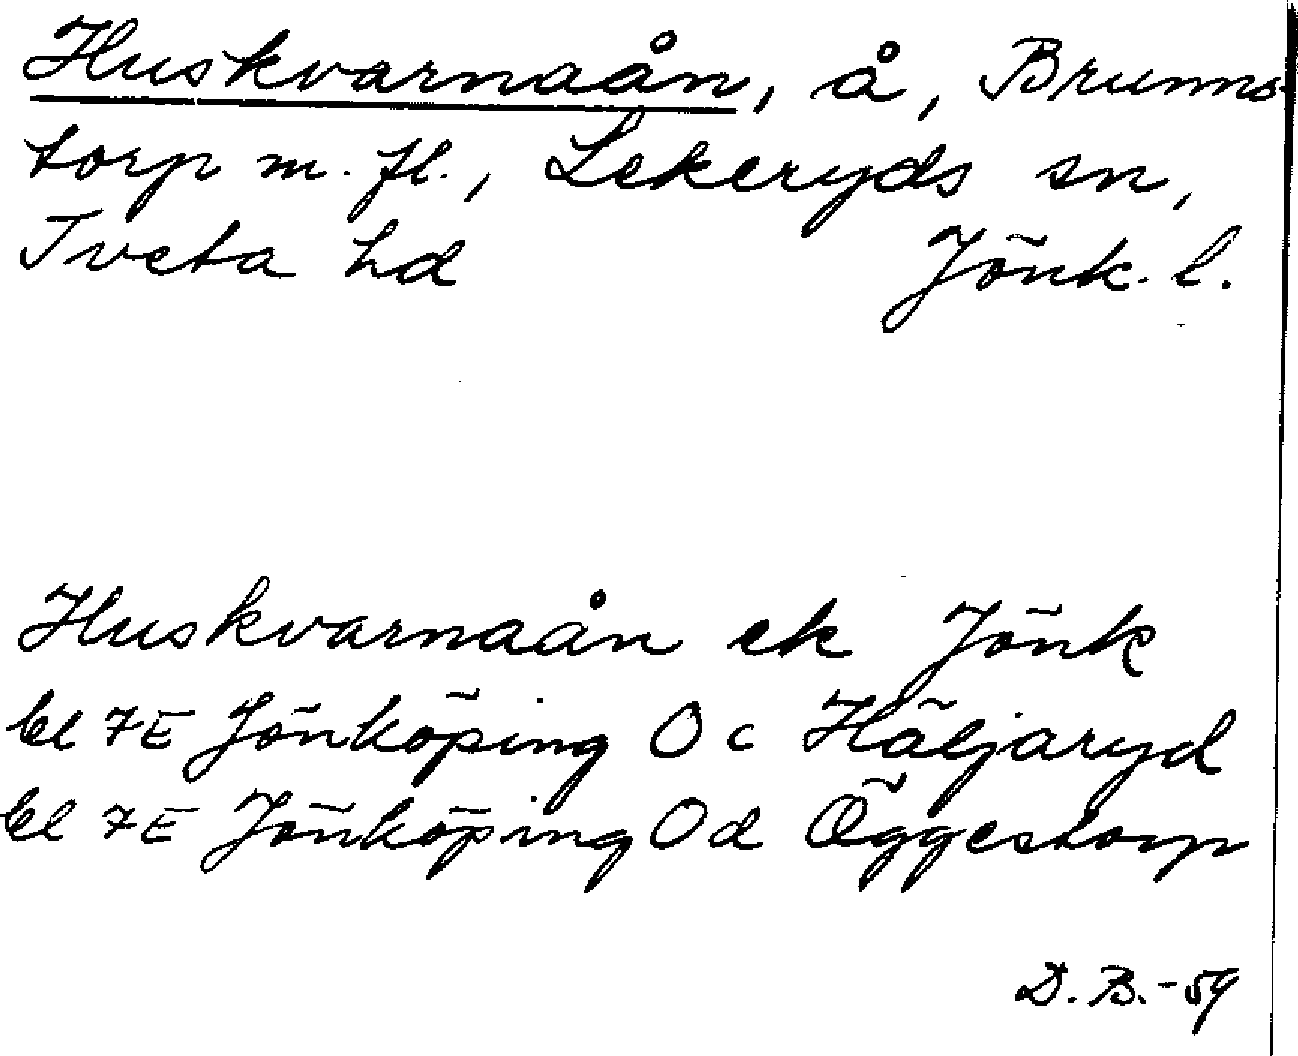 Huskvarnaån, å, Brunns-
torp m. fl., Lekeryds sn,
Tveta hd Jönk. l.
Huskvarnaån ek Jönk
bl 7E Jönköping 0c Häljaryd
bl 7E Jönköping 0d Öggestorp
D. B. - 59